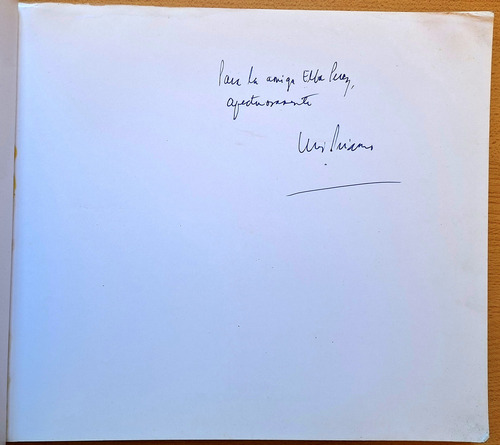 Para la amiga Elba Perez,
afectuosamente